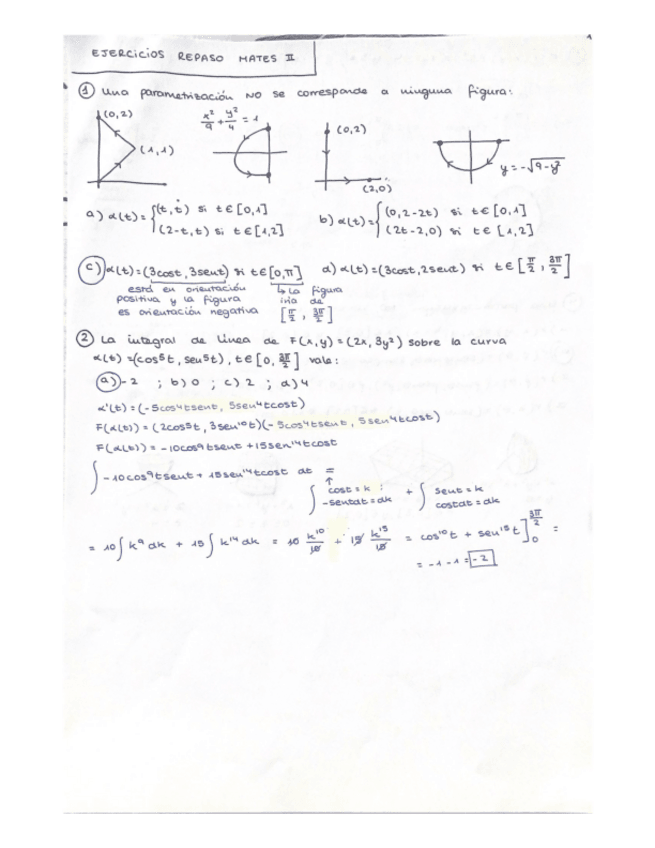 EJERCICIOS REPASO MATES II
① Una parametrización NO se corresponde a ninguna figura:
(0,2)
(1,1)
x²/9 + y²/4 = 1
(0,2)
(2,0)
y = -√9-y²
a) α(t) = { (t, t) si t ∈ [0,1]
(2-t, t) si t ∈ [1,2]
b) α(t) = { (0, 2-2t) si t ∈ [0,1]
(2t-2, 0) si t ∈ [1,2]
c) α(t) = (3cost, 3sent) si t ∈ [0,π] d) α(t) = (3cost, 2sent) si t ∈ [π/2, 3π/2]
está en orientación positiva y la figura es orientación negativa
↳ La figura iría de [π/2, 3π/2]
② La integral de línea de F(x,y) = (2x, 3y²) sobre la curva
α(t) = (cos⁵t, sen⁵t), t ∈ [0, 3π/2] vale:
a) -2 ; b) 0 ; c) 2 ; d) 4
α'(t) = (-5cos⁴tsent, 5sen⁴tcost)
F(α(t)) = (2cos⁵t, 3sen¹⁰t)(-5cos⁴tsent, 5sen⁴tcost)
F(α(t)) = -10cos⁹tsent + 15sen¹⁴tcost
∫ -10cos⁹tsent + 15sen¹⁴tcost dt =
↑
∫ cost = k ; -sentdt = dk + ∫ sent = k costdt = dk
= 10 ∫ k⁹ dk + 15 ∫ k¹⁴ dk = 10 k¹⁰/10 + 15 k¹⁵/15 = cos¹⁰t + sen¹⁵t ]₀^3π/2 =
= -1 -1 = -2